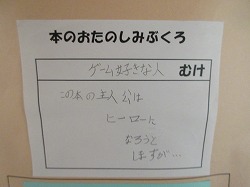 本のおたのしみぶくろ
ゲーム好きな人 むけ
この本の主人公は
ヒーローに
なろうと
しますが…